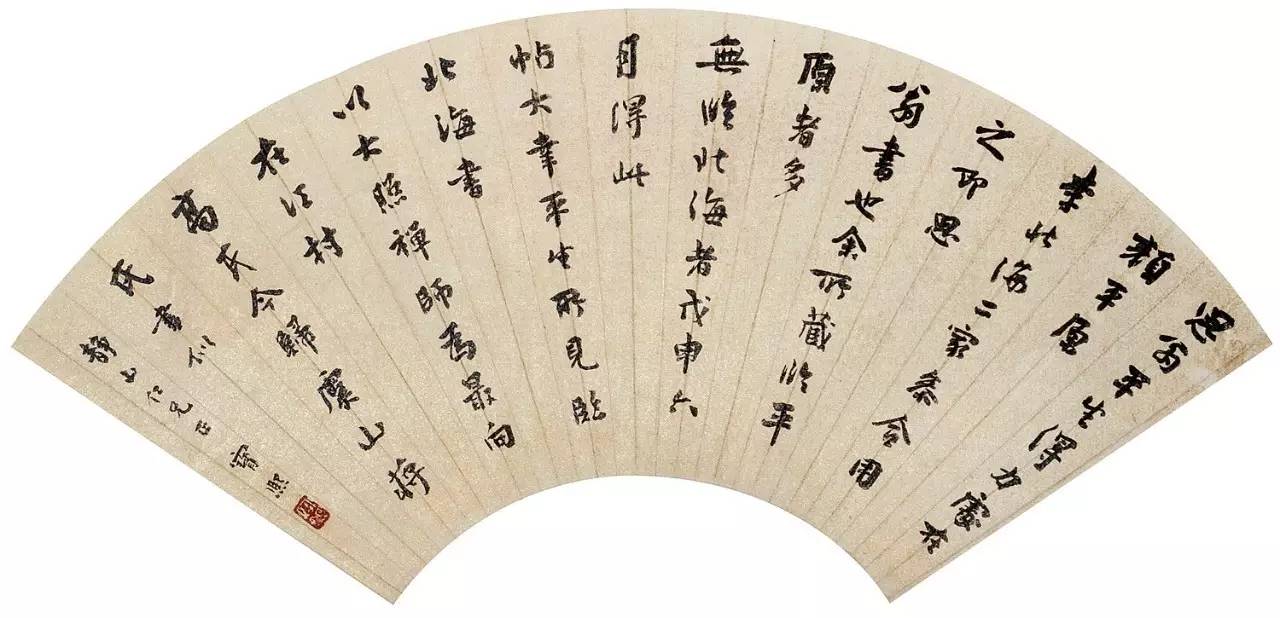 思翁平生得力處在
顏平原
李北海二家參合用
之即思
翁書也余所藏臨平
原者多
無臨北海者戊申六
月得此
帖大幸平生所見臨
北海書
以大照禪師為最向
在江村
高氏今歸虞山蔣
氏書似
靜山仁兄正 寶熙